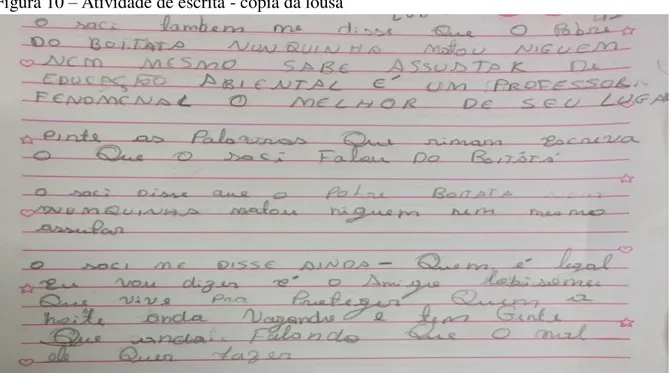 Figura 10 – Atividade de escrita - cópia da lousa
O saci tambem me disse que o Pobre
DO BOITATA NUNQUINHA Matou NIGUEM
NEM MESMO SABE ASSUSTAR De
EDUCAÇÃO ABIENTAL E' UM PROFESSOR
FENOMENAL O MELHOR DE SEU LUGAR
Pinte as Palavras Que rimam Escreva
O Que O saci Falou DO BOITATA
O saci Disse que o Pobre BOITATA
NUMQUINHA matou niguem nem mesmo
assustar
O saci me DISSE AINDA – Quem é legal
Eu vou dizer é o Amigo lobisome
Que vive pra Proteger Quem a
noite anda Vagando e tem Gente
Que anda Falando Que O mal
ele Quer fazer